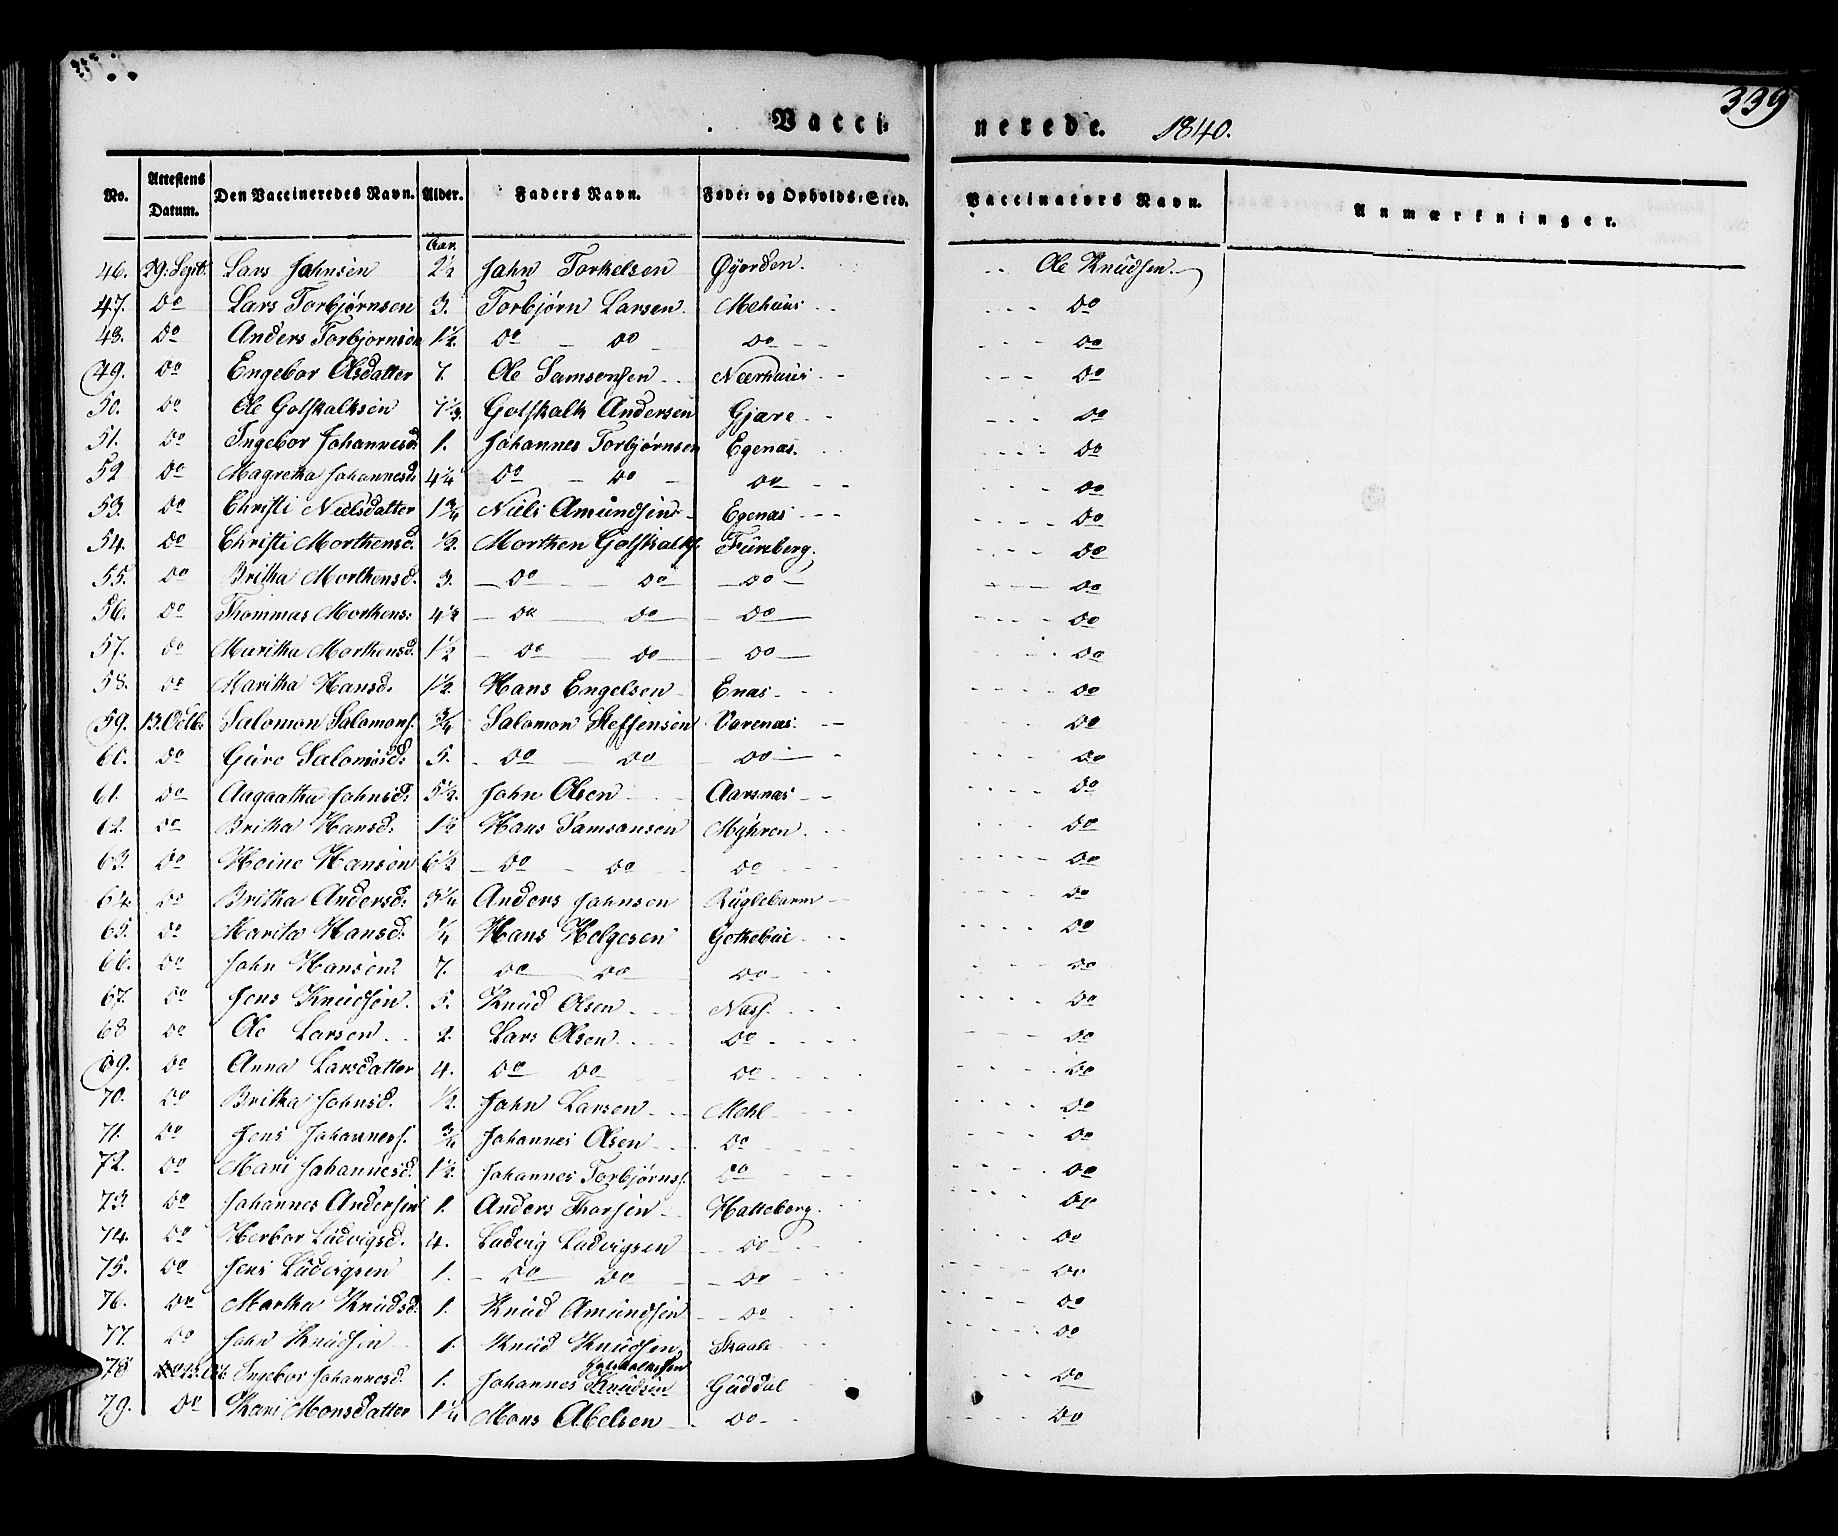 339
Vacci- nerede. 1840.
No. Attestens Datum. Den Vaccineredes Navn. Alder. Faders Navn. Føde- og Opholds-Sted. Vaccinators Navn. Anmærkninger.
Aar.
46. 29. Septb. Lars Jahnsen 2½ Jahn Torkelsen Øyerden. Ole Knudsen.
47. do Lars Torbjørnsen 3. Torbjørn Larsen Mehuus do
48. do Anders Torbjørnsen 1½. do do do do
49. do Engebor Olsdatter 7. Ole Samsonsen Nærhuus do
50. do Ole Gotskalksen 7⅓. Gotskalk Andersen Gjære do
51. do Ingebor Johannesd. 1. Johannes Torbjørnsen Egenæs. do
52 do Magretha Johannesd. 4¼ do do do do
53. do Christi Nielsdatter 1¾ Niels Amundsen Egenæs do
54. do Christi Morthensd. ½. Morthen Gotskalks. Fureberg. do
55. do Britha Morthensd. 3. do do do do
56. do Thommas Morthens: 4½ do do do do
57. do Maritha Morthensd. 1½ do do do do
58. do Maritha Hansd. 1½. Hans Engelsen Enæs do
59. 13. Octb. Salomon Salomons. ¾ Salomon Steffensen Varenæs. do
60. do Guro Salomosd: 5. do do do do
61. do Aagaatha Johnsd: 5½. John Olsen Aarsnæs do
62. do Britha Hansd. 1½ Hans Samsonsen Myhren do
63. do Heine Hansen 6½ do do do do
64. do Britha Andersd. 3¼ Anders Jahnsen Ruglebarm do
65. do Marita Hansd: ¼ Hans Helgesen Gothebüe do
66. do John Hansen. 7. do do do do
67. do Jens Knudsen. 5. Knud Olsen Næss. do
68 do Ole Larsen 2. Lars Olsen do do
69. do Anna Larsdatter 4. do do do do
70. do Britha Johnsd. ½. John Larsen Mehl do
71. do Jens Johanness. ¾ Johannes Olsen do do
72. do Mari Johannesd. 1½. Johannes Torbjørns. do do
73. do Johannes Andersen 1. Anders Tharsen Hatteberg. do
74 do Herbor Ludvigsd. 4. Ludvig Ludvigsen do do
75. do Jens Ludvigsen 1. do do do do
76. do Martha Knudsd. 1. Knud Amundsen do do
77. do John Knudsen 1. Knud Knudsen Skaale do
78 Ingebor Johannesd. 1. Johannes Guddal do
79. do Kari Monsdatter 1¼ Mons Abelsen do do